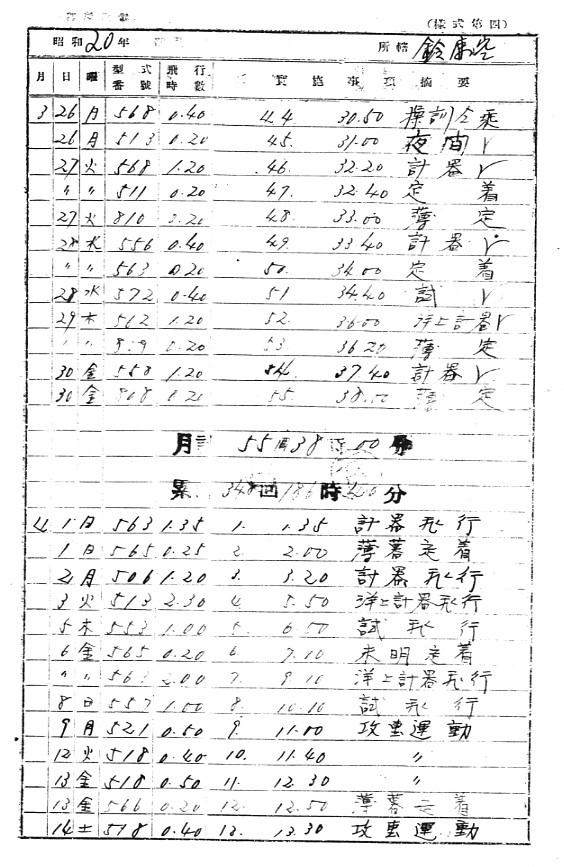 (様式第四)
昭和20年 所轄 鈴鹿空
月 日 曜 型式番號 飛行時數 實施事項 摘要
3 26 月 568 0.40 44 30.50 操訓仝乗
26 月 513 0.20 45. 31.00 夜間〃
27 火 568 1.20 46. 32.20 計器〃
〃 〃 511 0.20 47. 32.40 定着
27 火 810 0.20 48. 33.00 薄定
28 水 556 0.40 49 33.40 計器〃
〃 〃 563 0.20 50. 34.00 定着
28 水 572 0.40 51 34.40 試〃
29 木 562 1.20 52. 36.00 洋上計器〃
〃 〃 0.20 53 36.20 薄定
30 金 558 1.20 54. 37.40 計器〃
30 金 0.20 55. 38.00 薄定
月計 55回38時00分
累 348回186時 分
4 1 日 563 1.35 1. 1.35 計器飛行
1 日 565 0.25 2. 2.00 薄暮定着
2 月 506 1.20 3. 3.20 計器飛行
3 火 513 2.30 4. 5.50 洋上計器飛行
5 木 553 1.00 5. 6.50 試飛行
6 金 565 0.20 6 7.10 未明定着
〃 〃 563 2.00 7. 9.10 洋上計器飛行
8 日 557 1.00 8. 10.10 試飛行
9 月 521 0.50 9. 11.00 攻撃運動
12 火 518 0.40 10. 11.40 〃
13 金 518 0.50 11. 12.30 〃
13 金 566 0.20 12. 12.50 薄暮定着
14 土 518 0.40 13. 13.30 攻撃運動